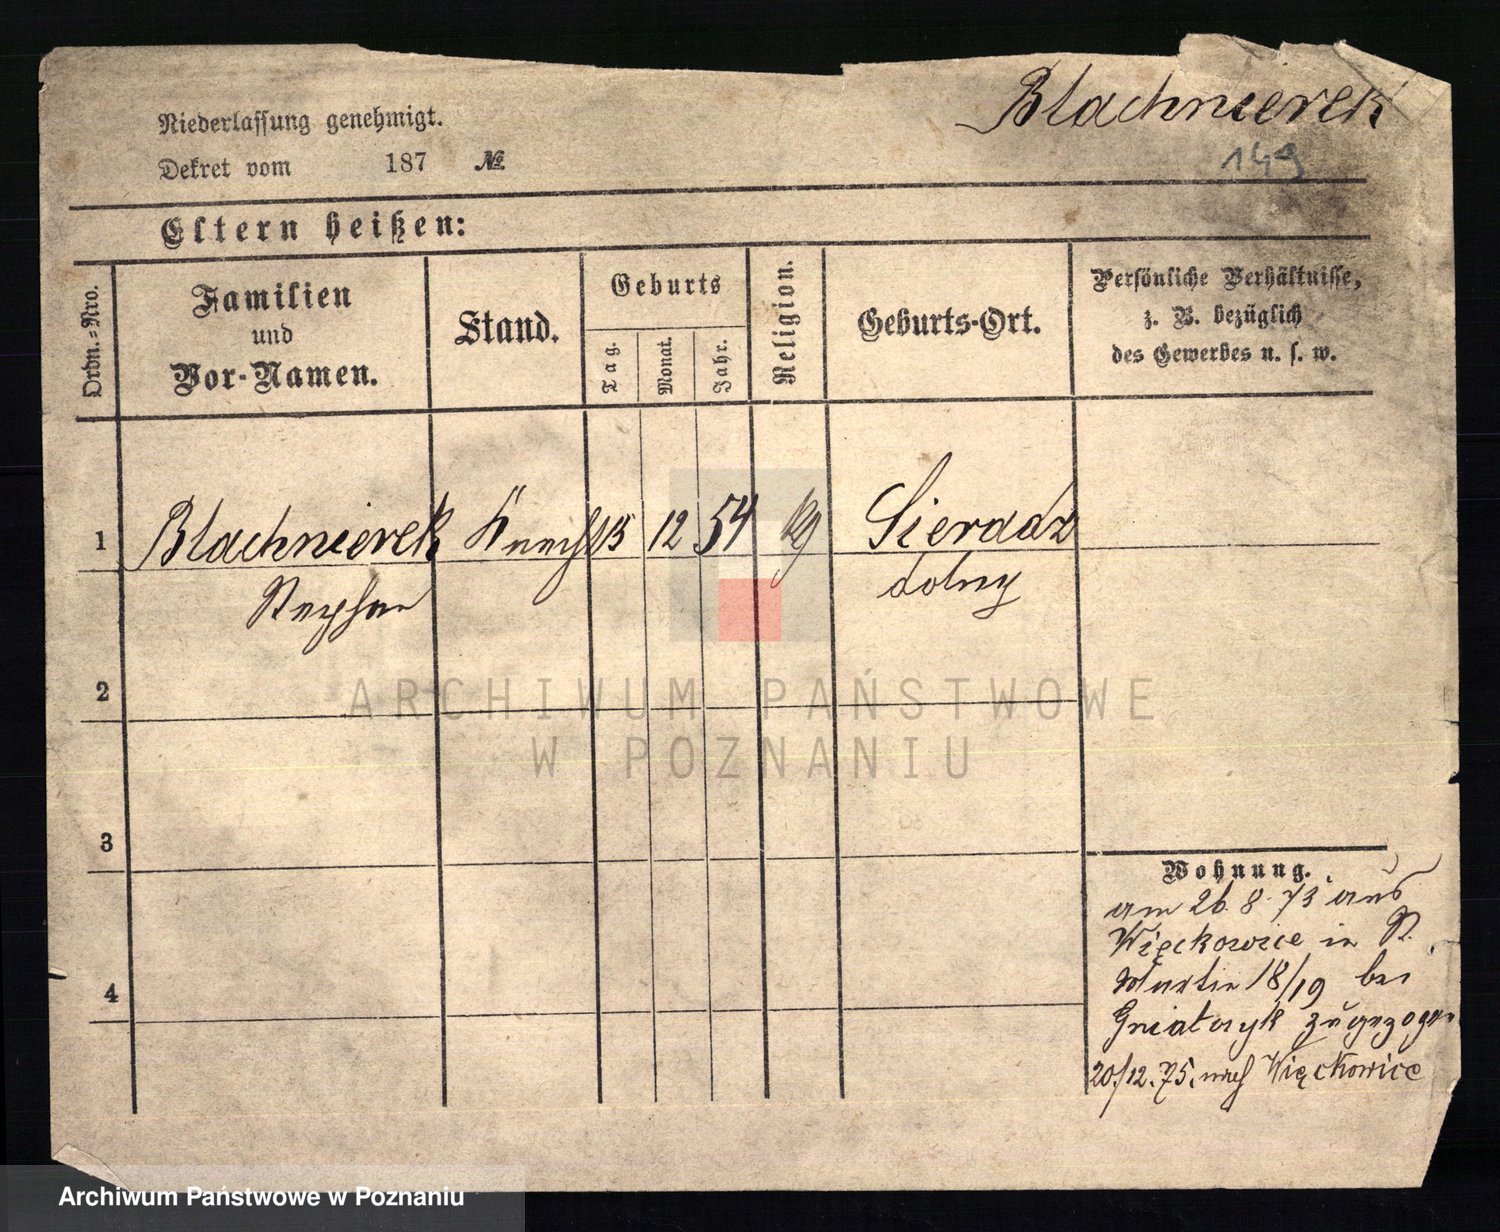 Blachnierek
149
Niederlassung genehmigt.
Dekret vom 187 №
Eltern heißen:
Ordn.-Nro.
Familien
und
Vor-Namen.
Stand.
Geburts
Tag.
Monat.
Jahr.
Religion.
Geburts-Ort.
Persönliche Verhältnisse,
z. B. bezüglich
des Gewerbes u. s. w.
1 Blachnierek Knecht 13 12 54 kg Sieradz
Stephan dolny
2
3
4
Wohnung.
am 26. 8. 73 aus
Więckowice in St.
Martin 18/19 bei
Gniatczyk zugezogen
20./12. 75. nach Więckowice
ARCHIWUM PAŃSTWOWE
W POZNANIU
Archiwum Państwowe w Poznaniu